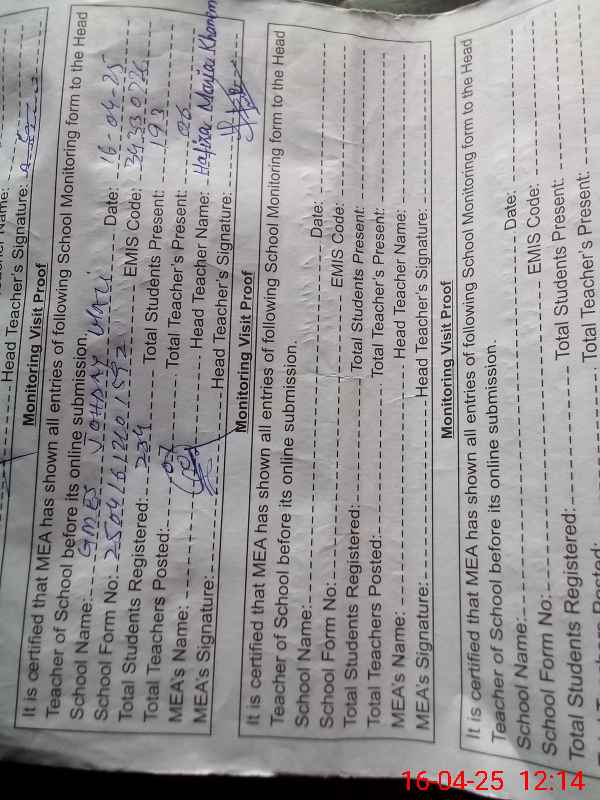 Head Teacher's Signature:
Monitoring Visit Proof
It is certified that MEA has shown all entries of following School Monitoring form to the Head
Teacher of School before its online submission.
School Name: GMES JOHDAY WALI Date: 16-04-25
School Form No: EMIS Code: 34330226
Total Students Registered: 234 Total Students Present: 193
Total Teachers Posted: 07 Total Teacher's Present: 06
MEA's Name: Head Teacher Name: Hafiza Maria Khanem
MEA's Signature: Head Teacher's Signature:
Monitoring Visit Proof
It is certified that MEA has shown all entries of following School Monitoring form to the Head
Teacher of School before its online submission.
School Name: Date:
School Form No: EMIS Code:
Total Students Registered: Total Students Present:
Total Teachers Posted: Total Teacher's Present:
MEA's Name: Head Teacher Name:
MEA's Signature: Head Teacher's Signature:
Monitoring Visit Proof
It is certified that MEA has shown all entries of following School Monitoring form to the Head
Teacher of School before its online submission.
School Name: Date:
School Form No: EMIS Code:
Total Students Registered: Total Students Present:
Posted: Total Teacher's Present:
16-04-25 12:14